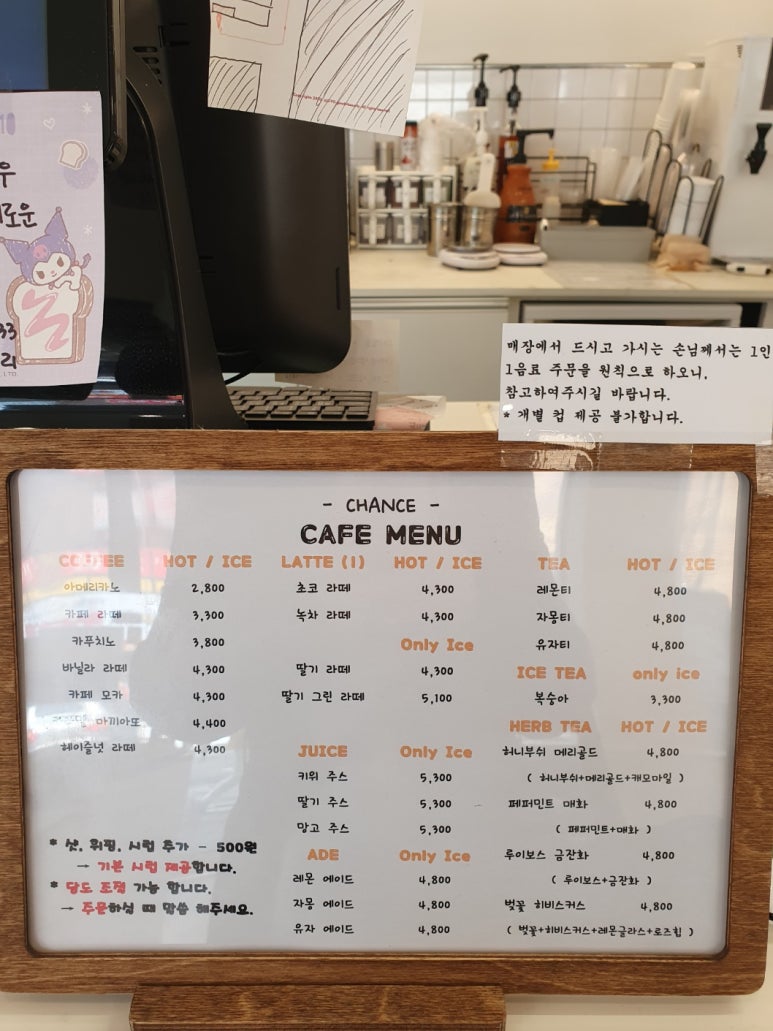 우
로운
33
리
매장에서 드시고 가시는 손님께서는 1인
1음료 주문을 원칙으로 하오니,
참고하여주시길 바랍니다.
* 개별 컵 제공 불가합니다.
- CHANCE -
CAFE MENU
COFFEE HOT / ICE
아메리카노 2,800
카페 라떼 3,300
카푸치노 3,800
바닐라 라떼 4,300
카페 모카 4,300
마끼아또 4,400
헤이즐넛 라떼 4,300
* 샷, 휘핑, 시럽 추가 - 500원
→ 기본 시럽 제공합니다.
* 당도 조절 가능 합니다.
→ 주문하실 때 말씀 해주세요.
LATTE (1) HOT / ICE
초코 라떼 4,300
녹차 라떼 4,300
Only Ice
딸기 라떼 4,300
딸기 그린 라떼 5,100
JUICE Only Ice
키위 주스 5,300
딸기 주스 5,300
망고 주스 5,300
ADE Only Ice
레몬 에이드 4,800
자몽 에이드 4,800
유자 에이드 4,800
TEA HOT / ICE
레몬티 4,800
자몽티 4,800
유자티 4,800
ICE TEA only ice
복숭아 3,300
HERB TEA HOT / ICE
허니부쉬 메리골드 4,800
( 허니부쉬+메리골드+캐모마일 )
페퍼민트 매화 4,800
( 페퍼민트+매화 )
루이보스 금잔화 4,800
( 루이보스+금잔화 )
벚꽃 히비스커스 4,800
( 벚꽃+히비스커스+레몬글라스+로즈힙 )